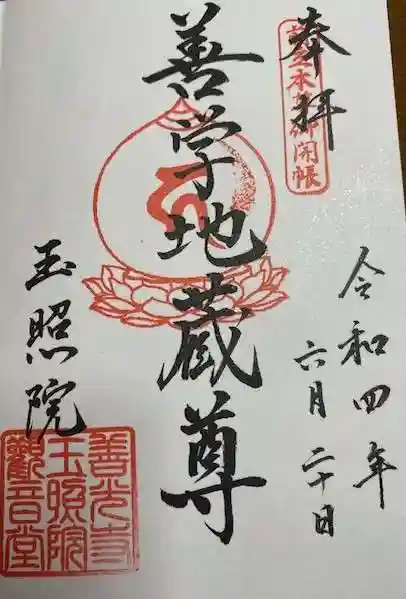 奉拝
本尊御開帳
令和四年
六月二十日
善学地蔵尊
玉照院
善光寺
玉照院
觀音堂